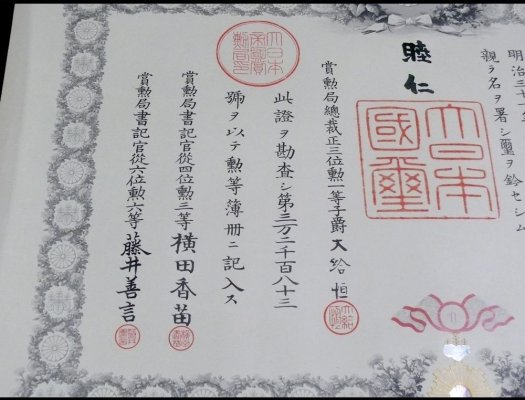 明治三十
親ラ名ヲ署シ璽ヲ鈐セシム
睦仁
大日本國璽
賞勲局總裁正三位勲一等子爵大給恒
此證ヲ勘査シ第三万二千百八十三
號ヲ以テ勲等簿冊ニ記入ス
大日本帝國賞勲局印
賞勲局書記官從四位勲三等横田香苗
賞勲局書記官從六位勲六等藤井善言